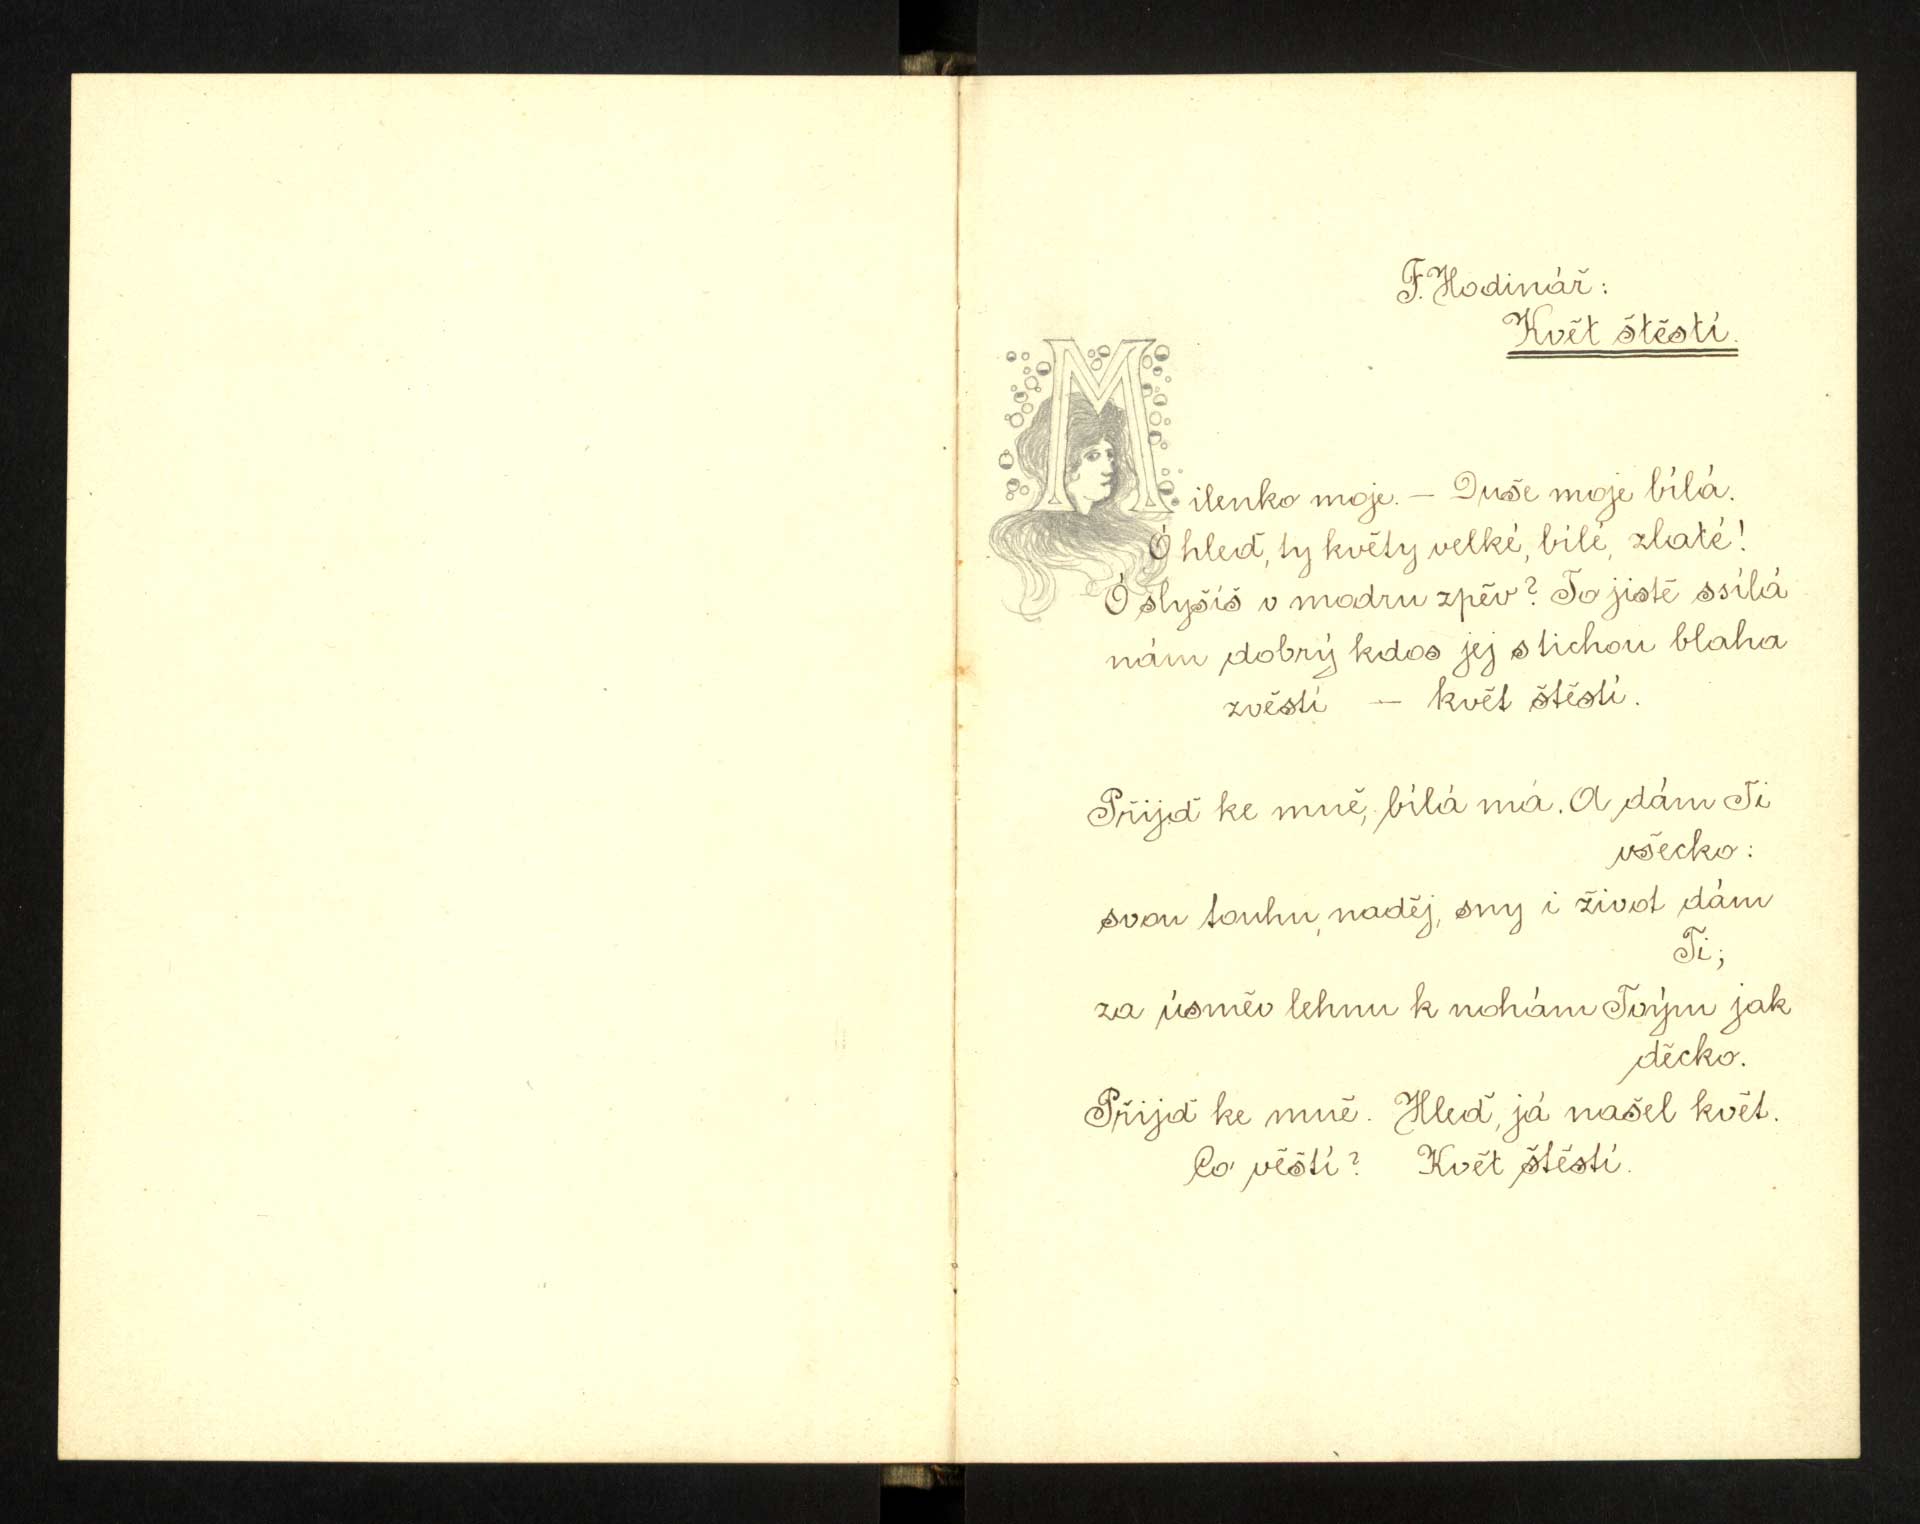 F. Hodinář:
Květ štěstí.
Milenko moje. – Duše moje bílá.
Ó hleď, ty květy velké, bílé, zlaté!
Ó slyšíš v modru zpěv? To jistě ssílá
nám dobrý kdos jej s tichou blaha
zvěstí – květ štěstí.
Přijď ke mně, bílá má. A dám Ti
všecko:
svou touhu, naděj, sny i život dám
Ti;
za úsměv lehnu k nohám Tvým jak
děcko.
Přijď ke mně. Hleď, já našel květ.
Co věští? Květ štěstí.